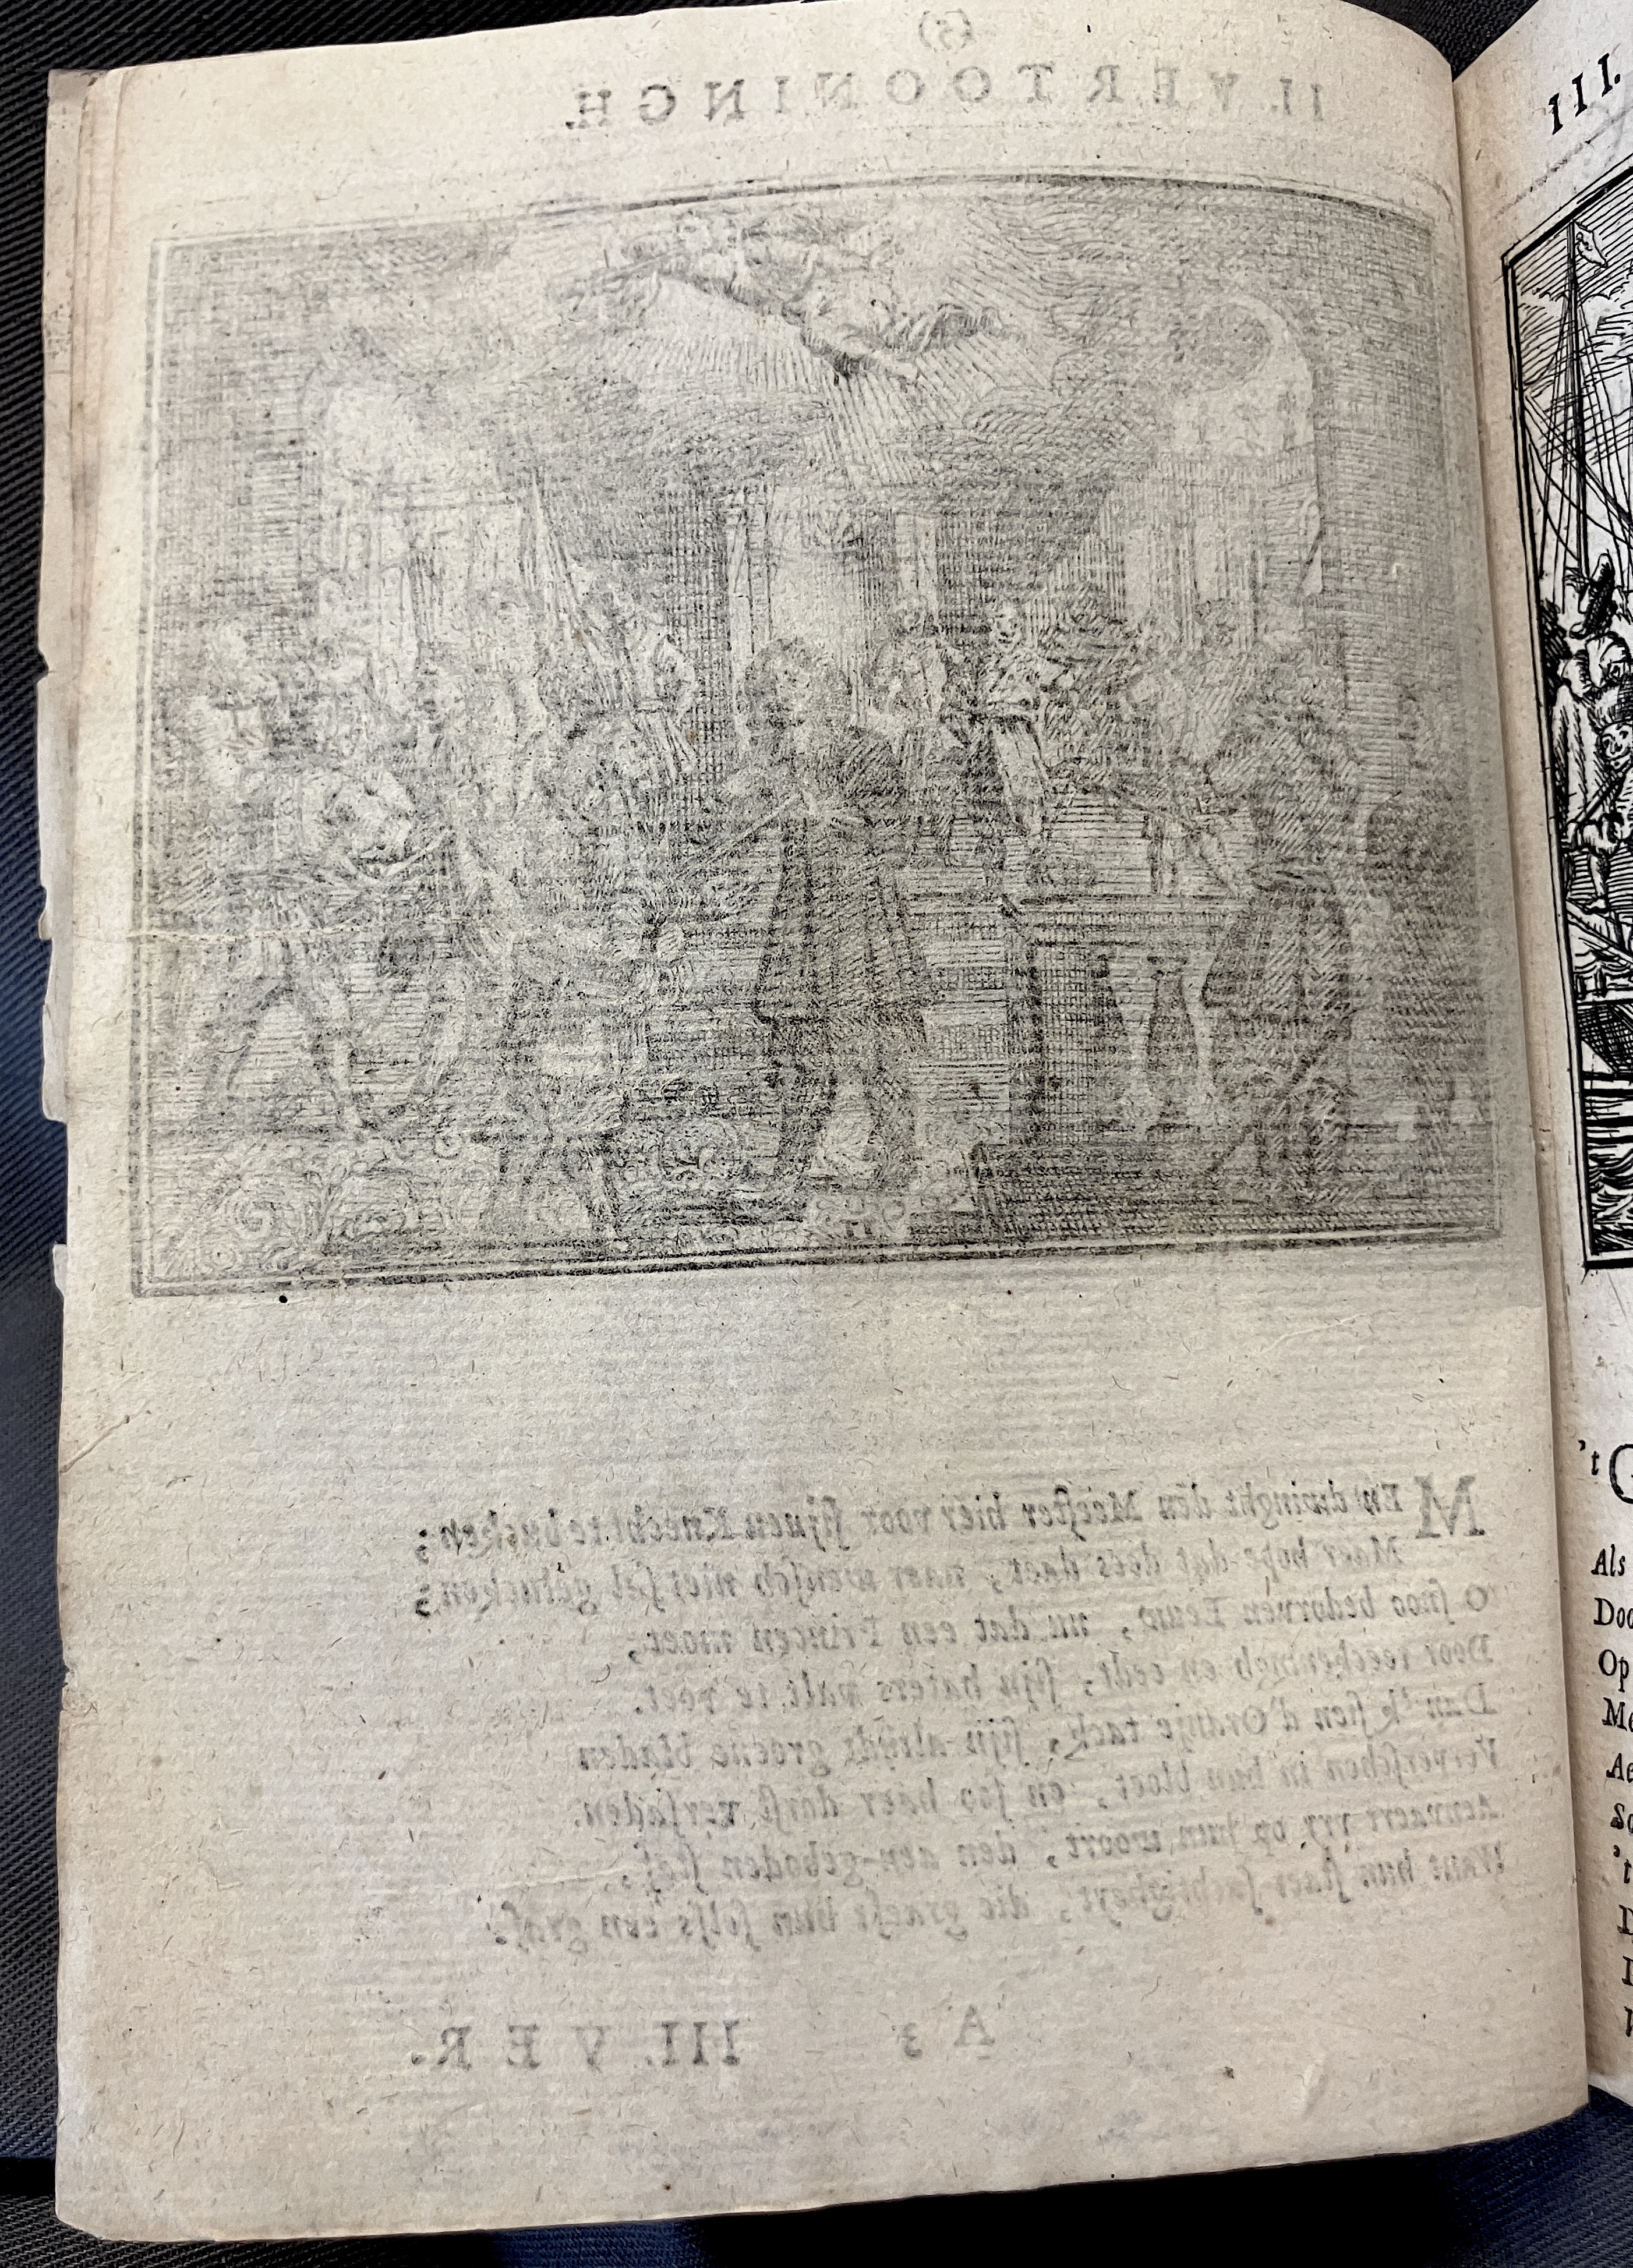 (5)
II. VERTOONINGH.
MEn dwinght den Meester hier voor sijnen Knecht te bucken;
Maer hope dat dees daet, naer wensch niet sal gelucken;
O snoo bedorven Eeuw, nu dat een Princen moet,
Door en eedt, sijn haters valt te voet.
Dan 'k sien d'Oranje tack, sijn altijdt groene bladen
Ververschen in hun bloet, en soo haer dorst versaden.
Aenvaert vry op hun woort, den aen-geboden staf,
Want hun die graeft hun selfs een graf.
A 3 III. VER-
III.
't G
Als
Doo
Op